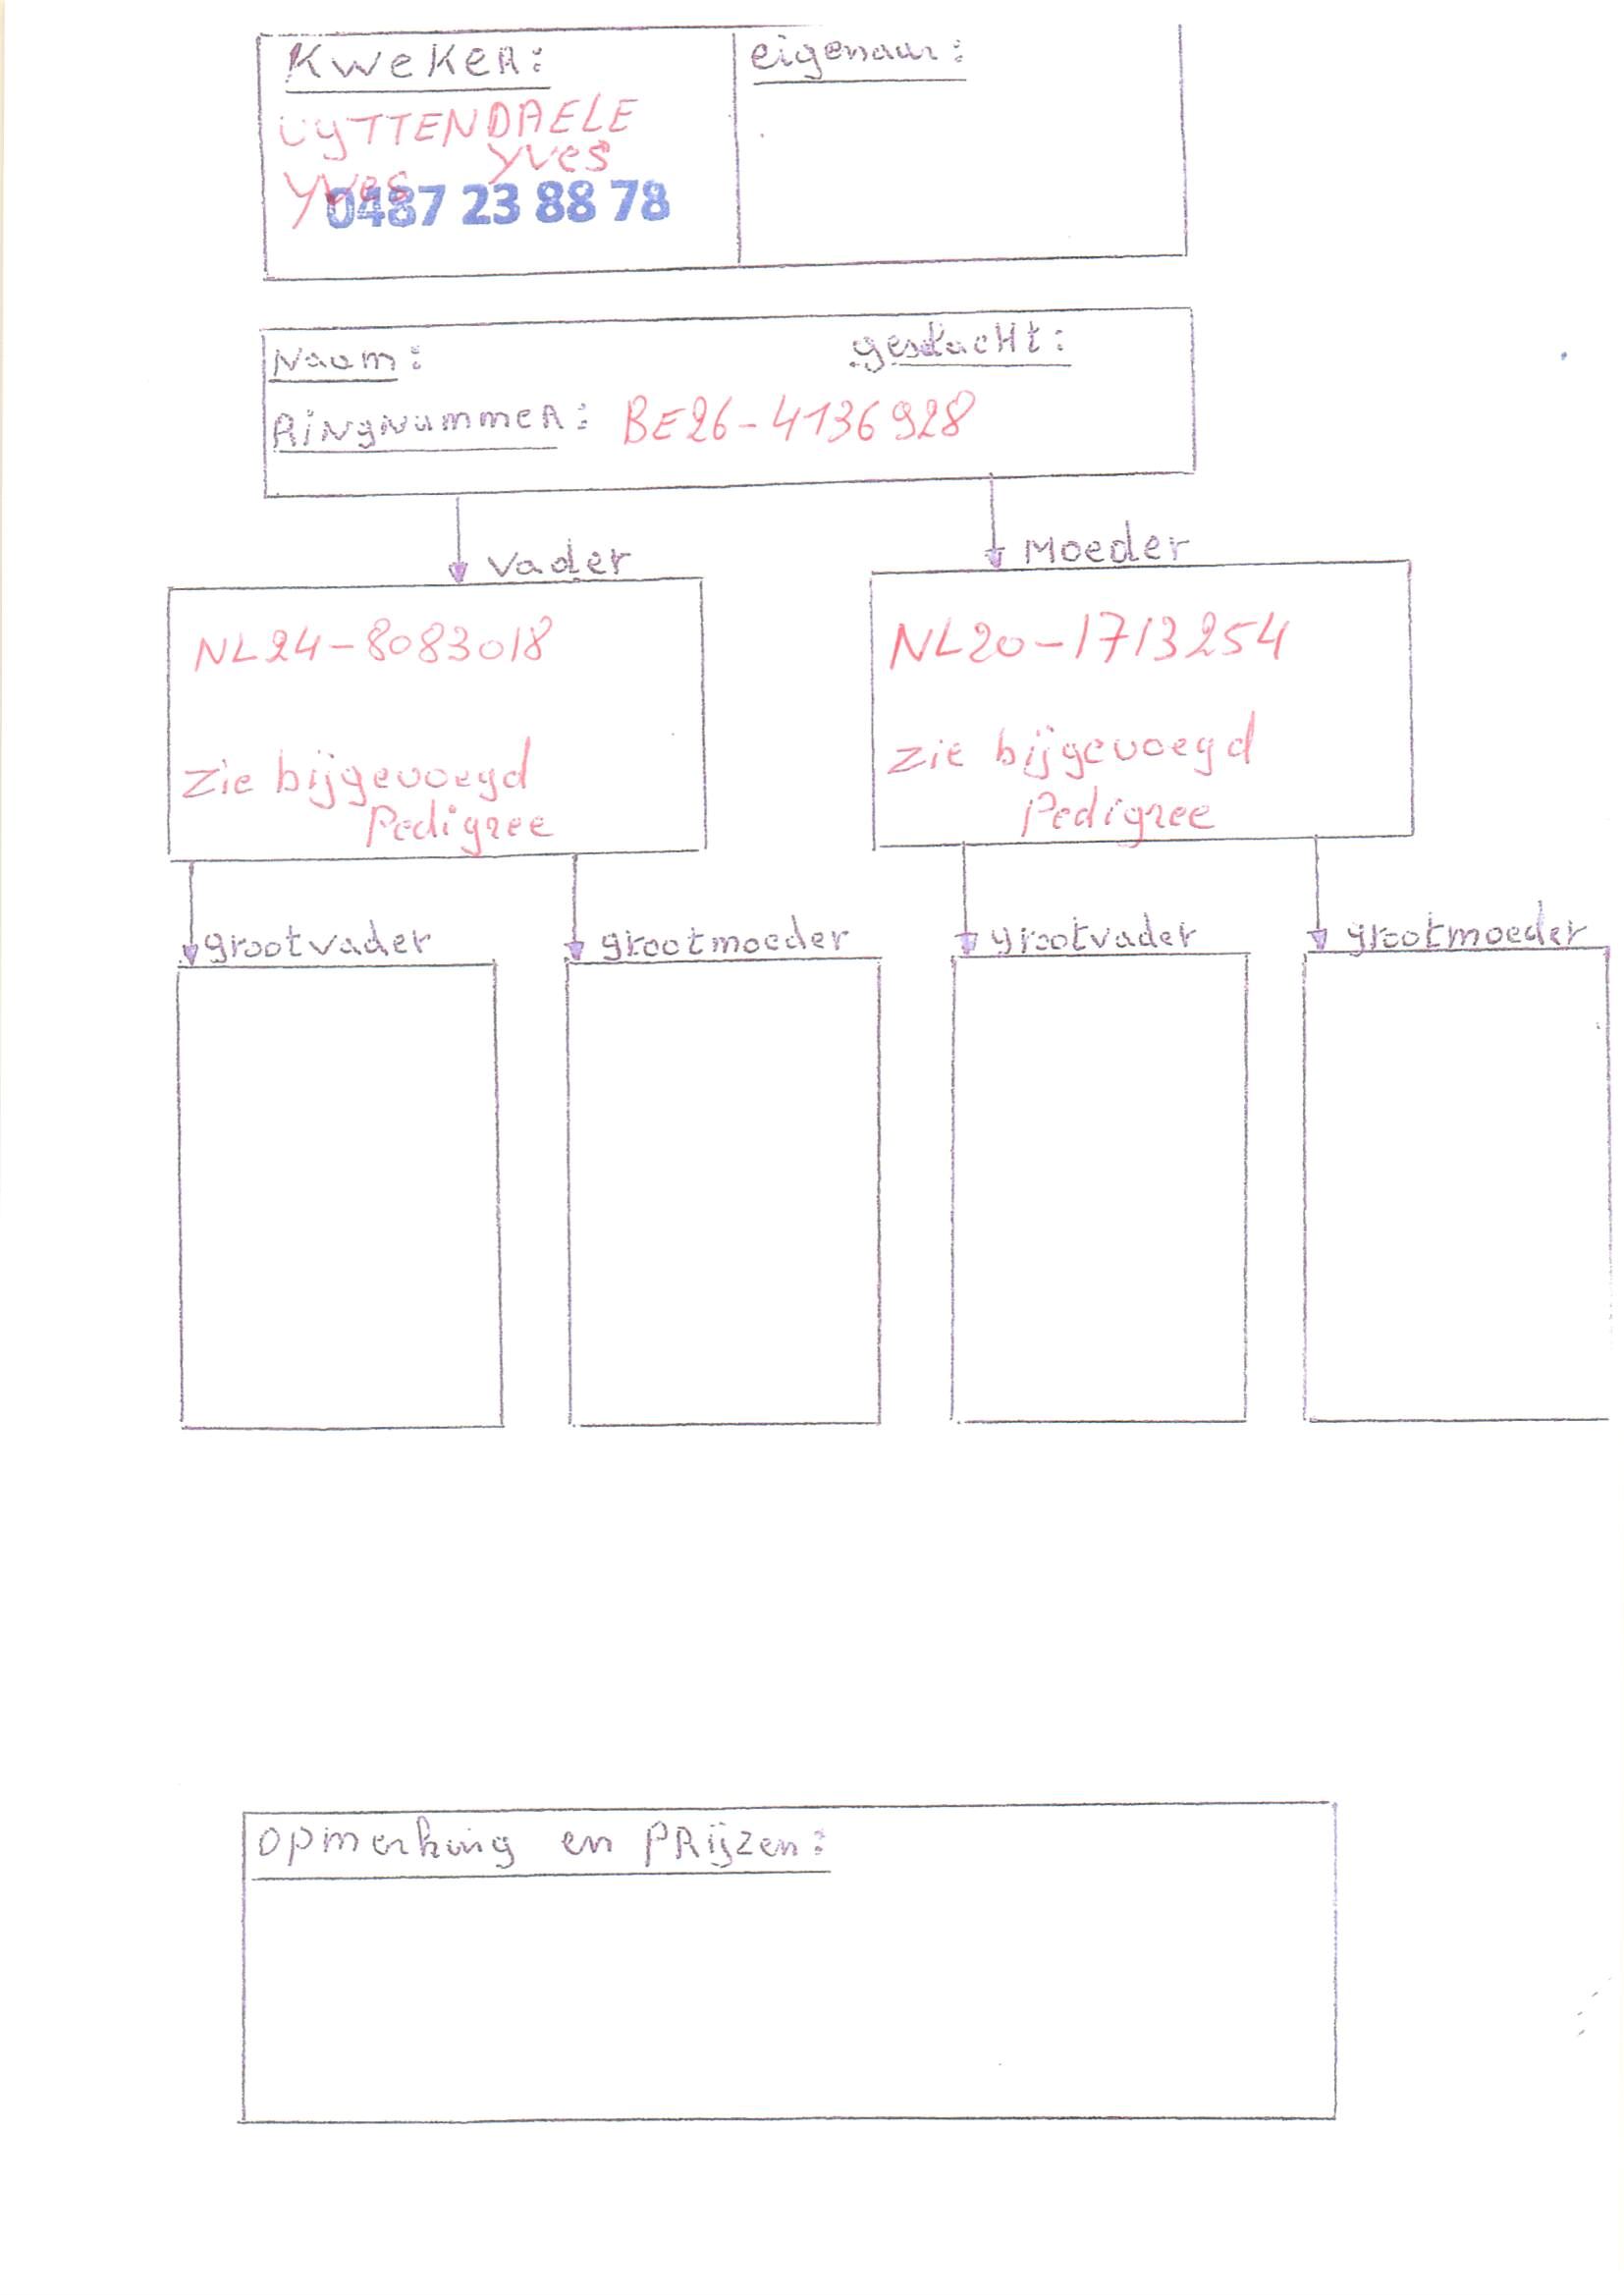 Kweker:
eigenaar:
UYTTENDAELE
Yves
Yves
0487 23 88 78
Naam:
geslacht:
Ringnummer: BE26-4136928
Vader
Moeder
NL24-8083018
NL20-1713254
Zie bijgevoegd
Pedigree
Zie bijgevoegd
Pedigree
grootvader
grootmoeder
grootvader
grootmoeder
opmerking en PRijzen: